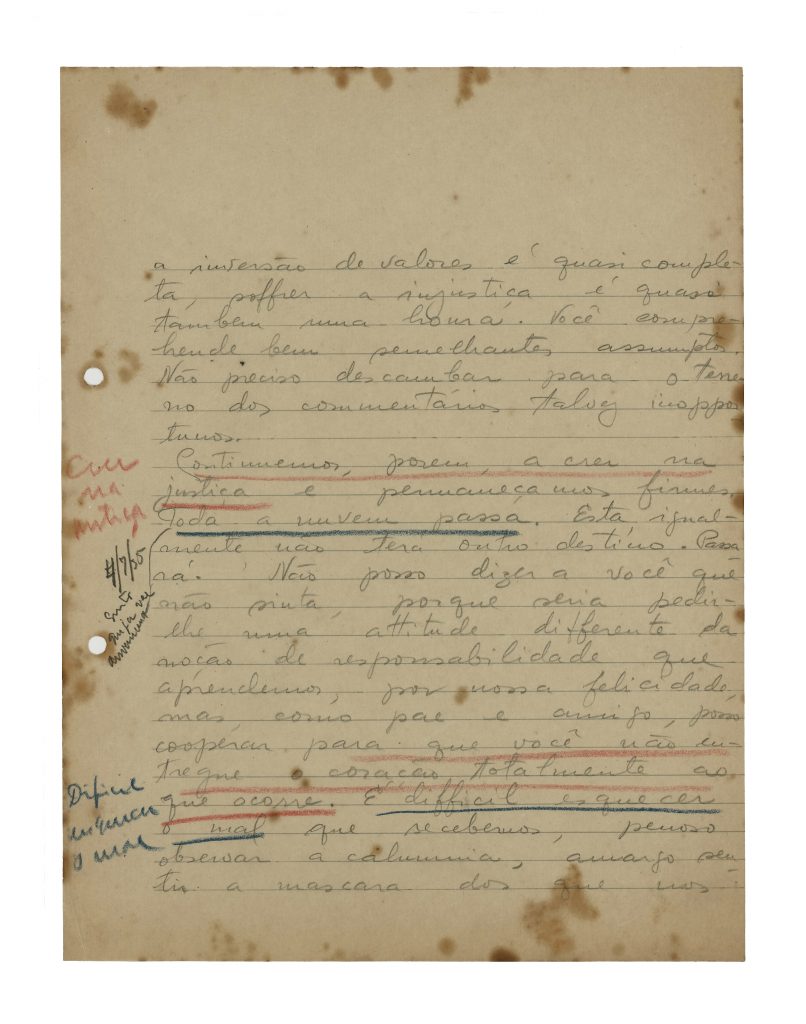 a inversão de valores é quasi comple-
ta, soffrer a injustiça é quasi
tambem uma honra. Você compre-
hende bem semelhantes assumptos.
Não preciso descambar para o terre
no dos commentários talvez inoppor
tunos.
Continuemos, porem, a crer na
justiça e permaneçamos firmes.
Toda a nuvem passa. Esta, igual-
mente não terá outro destino. Passa
rá. Não posso dizer a você que
não sinta, porque seria pedir-
lhe uma attitude differente da
noção de responsabilidade que
aprendemos, por nossa felicidade,
mas, como pae e amigo, posso
cooperar para que você não en-
tregue o coração totalmente ao
que ocorre. É difficil esquecer
o mal que recebemos, penoso
observar a calumnia, amargo sen
tir a mascara dos que nos
Crer
na
justiça
4/7/55
Dificil
esquecer
o mal